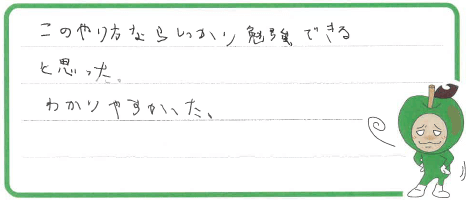 このやり方ならしっかり勉強できる
と思った。
わかりやすかった。